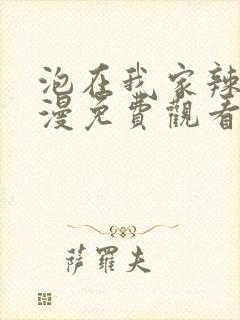 泡在我家辣
漫免費觀看
萨羅夫